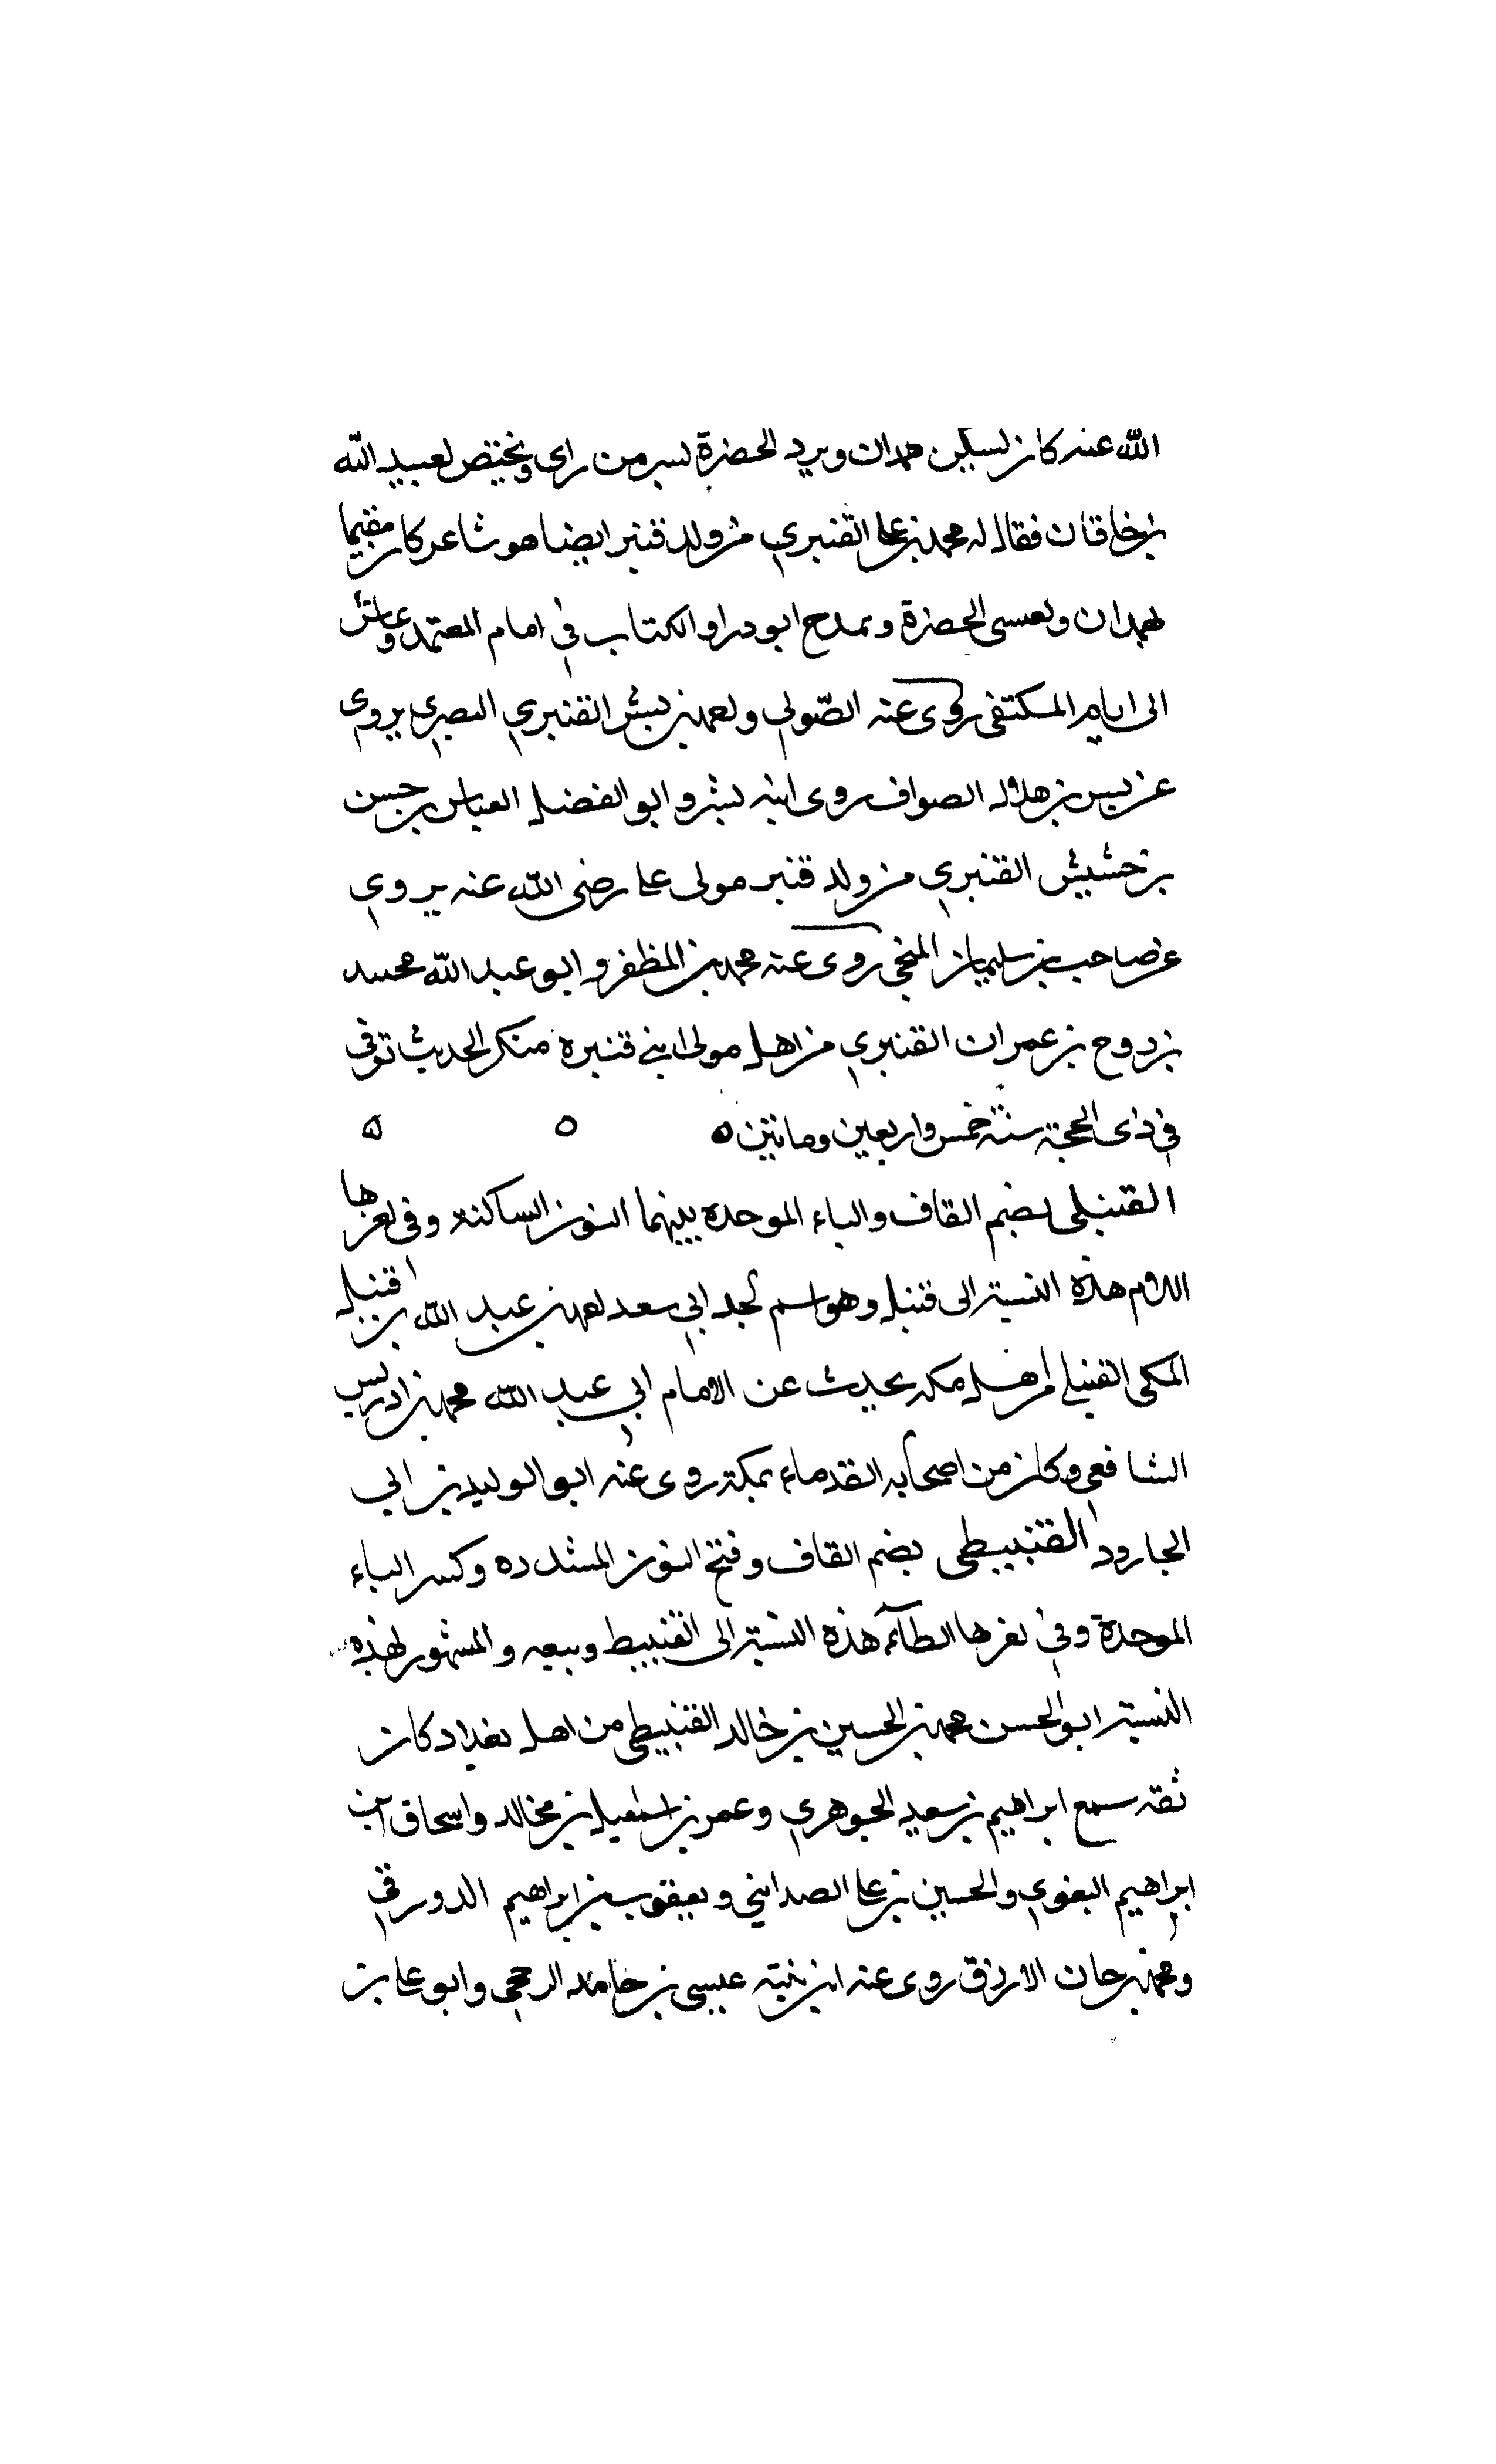 الله عنه كان يسكن همدان ويرد الحضرة بسر من راى ويختص لعبيد الله
بن خاقان فقال له محمد بن على القنبري من ولد قنبر ايضا هو شاعر كان مقيما
بهمدان ويغشى الحضرة ويمدح الكتاب في ايام المعتمد وعاش
الى ايام المكتفى روى عنه الصّولي بن بشر القنبري البصري يروى
عن بن هلال الصواف روى ابنه بشر وابو الفضل العباس بن حسن
بن خشيش القنبري من ولد قنبر مولى على رضى الله عنه يروي
عن صاحب بن سليمان روى عنه محمد بن المظفر وابو عبد الله محمد
بن روح بن عمران القنبري من اهل مولى ابنى قنبرة منكر الحديث توفى
في ذى الحجة سنة خمس واربعين ومائتين ٥ ٥ ٥
القنبلى بضم القاف والباء الموحدة بينهما النون الساكنة وفى اخرها
اللام هذه النسبة الى قنبل وهو اسم لجد ابي سعد محمد بن عبد الله بن قنبل
المكى القنبلي من اهل مكة يحدث عن الامام ابي عبد الله محمد بن ادريس
الشافعى وكان من اصحابه القدماء بمكة روى عنه ابو الوليد بن ابي
الجارود القنبيطى بضم القاف وفتح النون المشددة وكسر الباء
الموحدة وفي اخرها الطاء هذه النسبة الى القنبيط وبيعه والمشهور بهذه
النسبة ابو الحسن محمد بن الحسين بن خالد القنبيطى من اهل بغداد كان
ثقة سمع ابراهيم بن سعيد الجوهري وعمر بن اسمعيل بن مخالد واسحاق ابن
ابراهيم البغوي والحسين بن على الصدايني ويعقوب بن ابراهيم الدورقي
ومحمد بن حان الازرق روى عنه ابن بنته عيسى بن حامد الرخجي وابو على بن